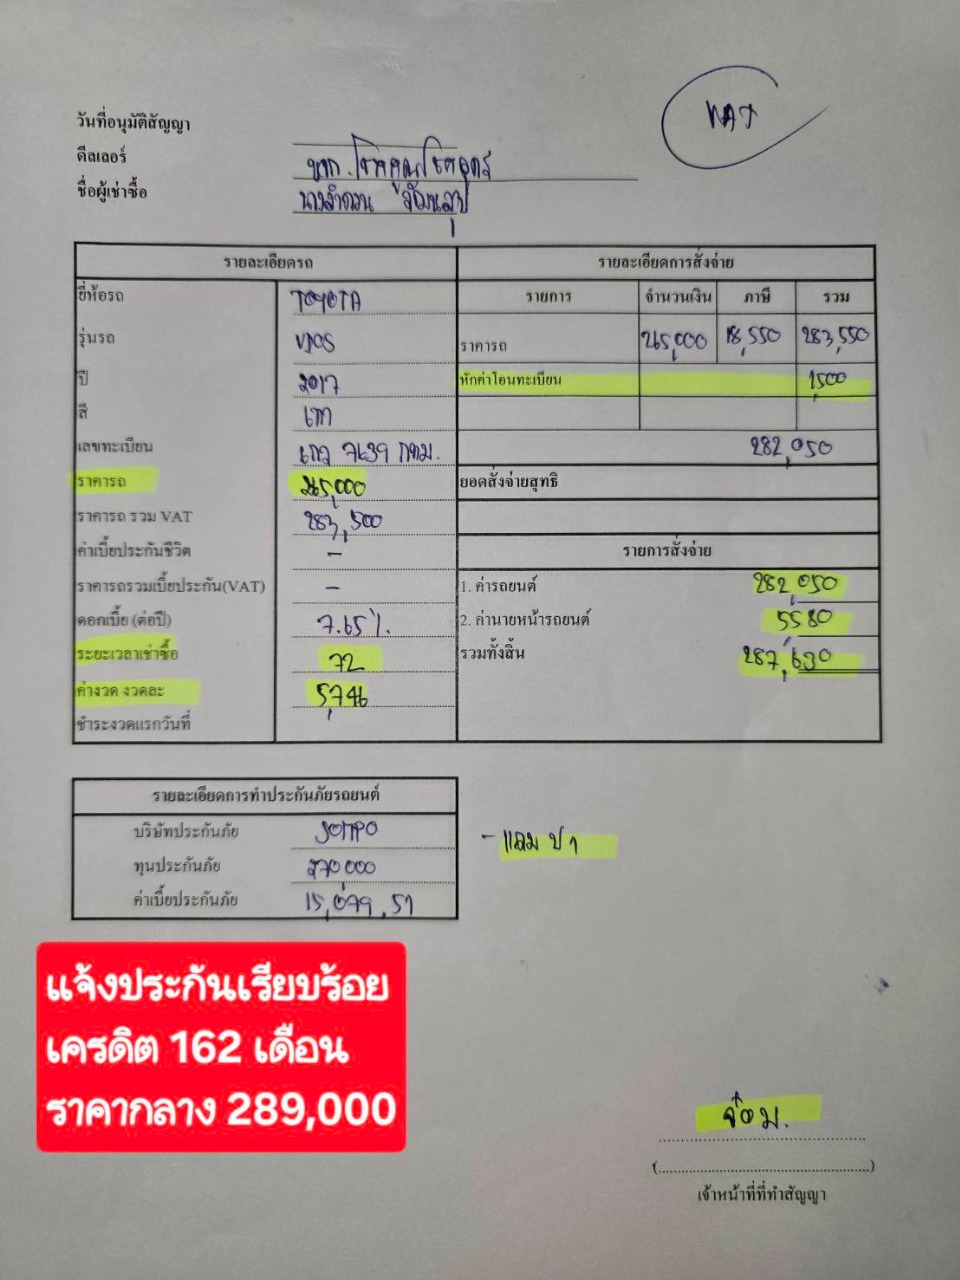 VAT
วันที่อนุมัติสัญญา
ดีลเลอร์ หจก.
ชื่อผู้เช่าซื้อ นางลำดวน
รายละเอียดรถ
ยี่ห้อรถ TOYOTA
รุ่นรถ VIOS
ปี 2017
สี เทา
เลขทะเบียน 7639 กทม.
ราคารถ 265,000
ราคารถ รวม VAT 283,500
ค่าเบี้ยประกันชีวิต -
ราคารถรวมเบี้ยประกัน(VAT) -
ดอกเบี้ย (ต่อปี) 7.65 %.
ระยะเวลาเช่าซื้อ 72
ค่างวด งวดละ 5,746
ชำระงวดแรกวันที่
รายละเอียดการสั่งจ่าย
รายการ จำนวนเงิน ภาษี รวม
ราคารถ 265,000 18,550 283,550
หักค่าโอนทะเบียน 1,500
282,050
ยอดสั่งจ่ายสุทธิ
รายการสั่งจ่าย
1. ค่ารถยนต์ 282,050
2. ค่านายหน้ารถยนต์ 5,580
รวมทั้งสิ้น 287,630
รายละเอียดการทำประกันภัยรถยนต์
บริษัทประกันภัย SOMPO
ทุนประกันภัย 270,000
ค่าเบี้ยประกันภัย 15,079.51
- แถม ป 1
แจ้งประกันเรียบร้อย
เครดิต 162 เดือน
ราคากลาง 289,000
จ๋อม.
(....................................................)
เจ้าหน้าที่ที่ทำสัญญา